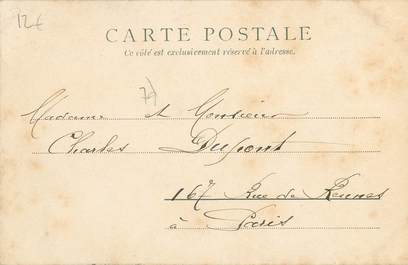 12€
CARTE POSTALE
Ce côté est exclusivement réservé à l'adresse.
Madame et Monsieur
Charles Dupont
167 Rue de Rennes
à Paris